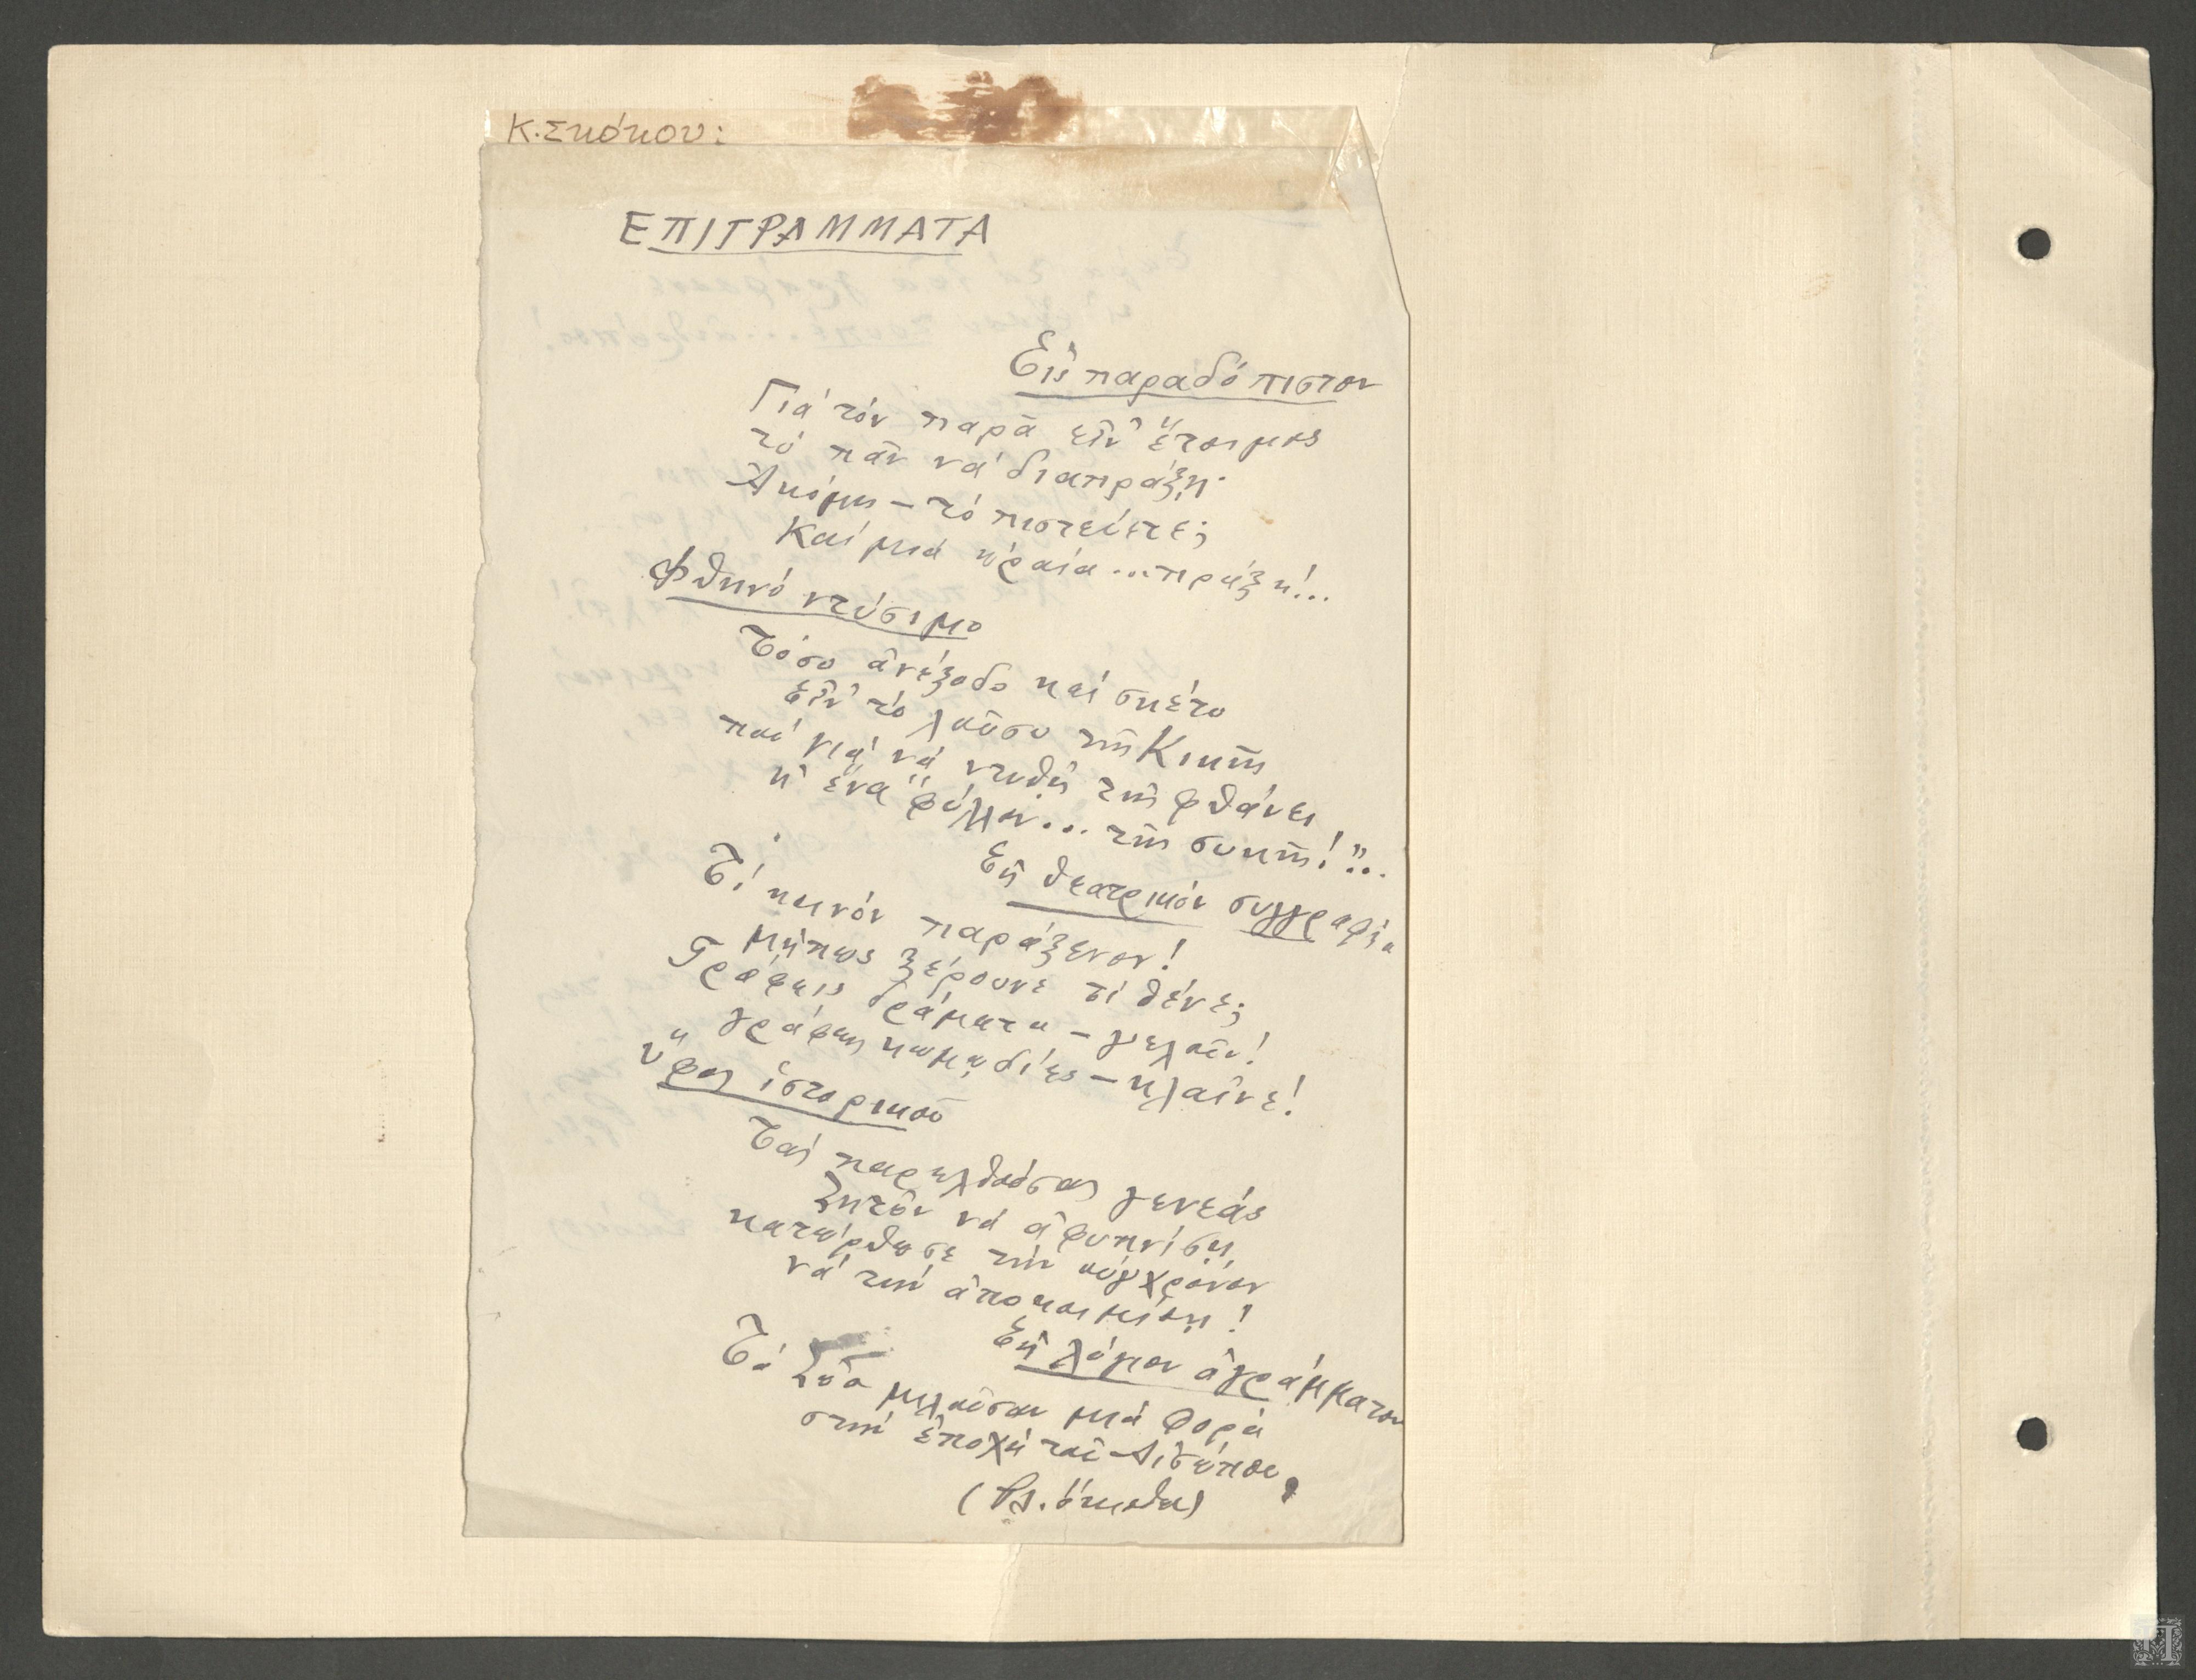 Κ. Σκόκου:
ΕΠΙΓΡΑΜΜΑΤΑ
Εἰς παραδόπιστον
Γιά τόν παρᾶ εἶν' ἕτοιμος
τό πᾶν νά διαπράξῃ·
Ἀκόμη – τό πιστεύετε;
Καί μιά ὡραία... πράξη!...
Φθηνό ντύσιμο
Τόσο ἀνέξοδο καί σκέτο
εἶν' τό λοῦσο τῆς Κικῆς
πού γιά νά ντυθῇ τῆς φθάνει
κ' ἕνα "φύλλον... τῆς συκῆς!"...
Εἰς θεατρικόν συγγραφέα
Τί κοινόν παράξενον!
Μήπως ξέρουνε τί θένε;
Γράφεις δράματα – γελοῦν!
γράφεις κωμῳδίες – κλαῖνε!
Ὕφος ἱστορικοῦ
Τάς παρελθούσας γενεάς
ζητῶν νά ἀφυπνίσῃ,
κατώρθωσε τήν σύγχρονον
νά τήν ἀποκοιμίσῃ!
Εἰς λόγιον ἀγράμματον
Τά ζῶα μιλοῦσαν μιά φορά
στήν ἐποχή τοῦ Αἰσώπου,
(Βλ. ὄπισθεν)